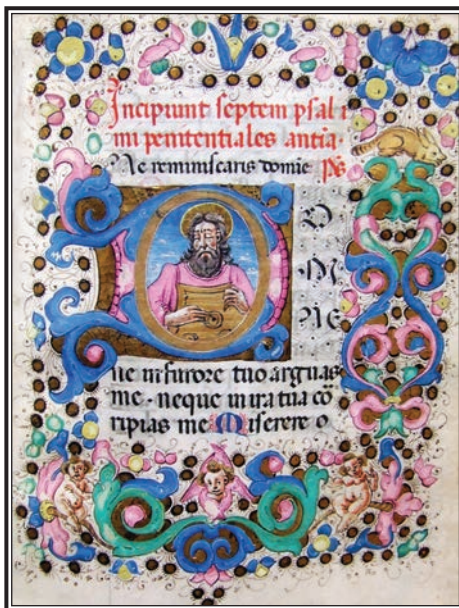 Incipiunt septem psal
mi penitentiales antia·
Ne reminiscaris domie Ps
D
ne in furore tuo arguas
me · neque in ira tua cō
ripias me Miserere